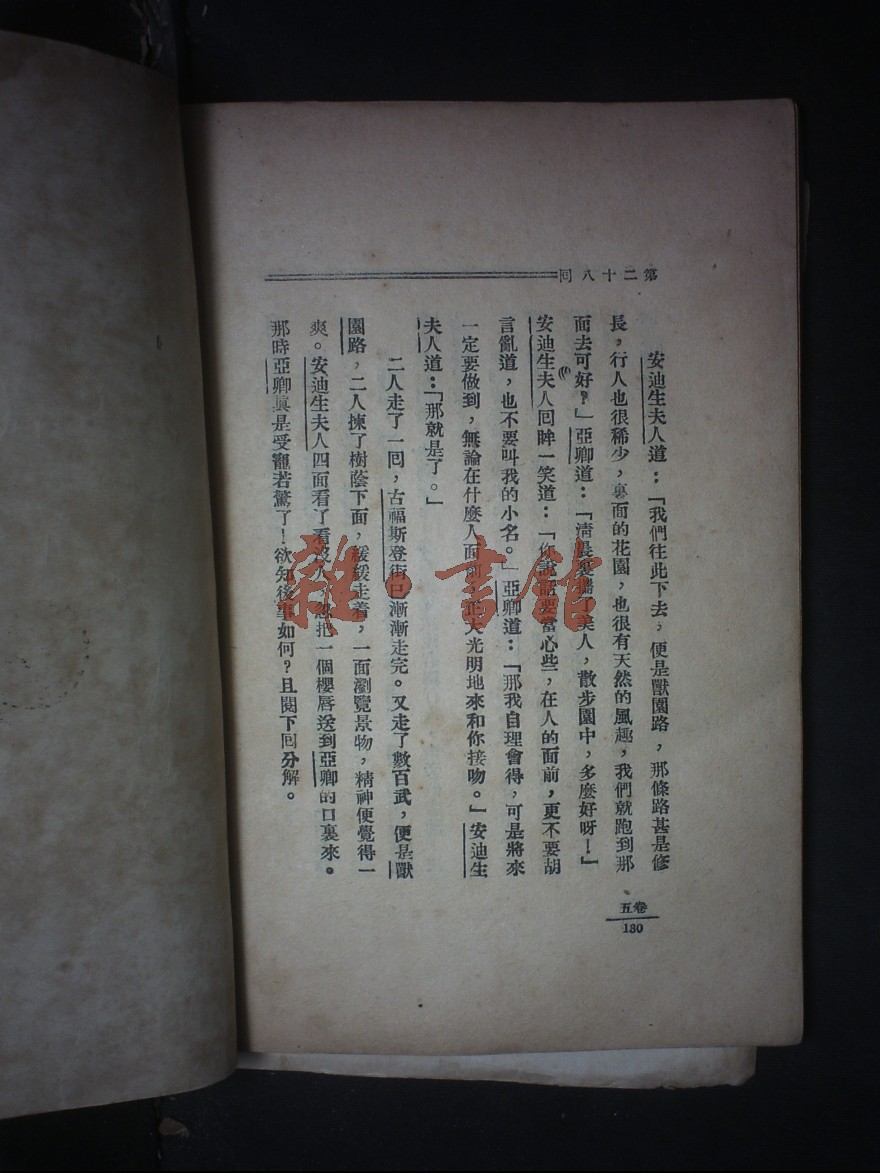 第二十八回
安迪生夫人道：「我們往此下去，便是獸園路，那條路甚是修
長，行人也很稀少，裏面的花園，也很有天然的風趣，我們就跑到那
面去可好？」亞卿道：「清晨裏攜了美人，散步園中，多麼好呀！」
安迪生夫人回眸一笑道：「你說話要當心些，在人的面前，更不要胡
言亂道，也不要叫我的小名。」亞卿道：「那我自理會得，可是將來
一定要做到，無論在什麼人面前，正大光明地來和你接吻。」安迪生
夫人道：「那就是了。」
二人走了一回，古福斯登街已漸漸走完。又走了數百武，便是獸
園路，二人揀了樹蔭下面，緩緩走着，一面瀏覽景物，精神便覺得一
爽。安迪生夫人四面看了看沒人，忽把一個櫻唇送到亞卿的口裏來。
那時亞卿眞是受寵若驚了！欲知後事如何？且閱下回分解。
卷五
130
雜·書館